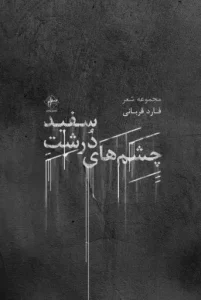 مجموعه شعر
فارد قربانی
سفید
دُرشتِ
چشم‌های